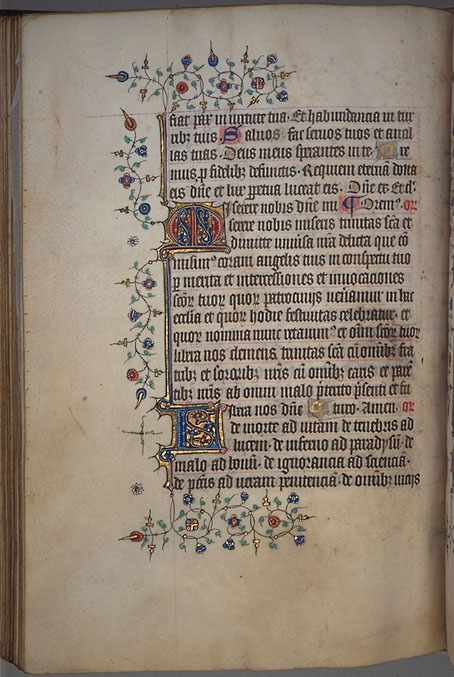 fiat pax in uirtute tua. Et habundancia in tur
ribz tuis. Saluos fac seruos tuos et ancil
las tuas. Deus meus sperantes in te. Ore
mus p fidelibz defunctis. Requiem eternā dona
eis dn̄e et lux ppetua luceat eis. Dn̄e ex Et cl.
serere nobis dn̄e mi Orem9. or
serere nobis miseris trinitas scā et
dimitte uniu̾sa nrā delicta que cō
misim9 coram angelis tuis in conspectu tuo
p merita et intercessiones et inuocaciones
scōr tuor quor patrocinijs ueniamur in hac
ecclia et quor hodie festiuitas celebratur et
quor nomina nunc recitauim9 et oīm scōr tuor
libera nos clemens trinitas scā cū omibz fra
tribz et sororibz nrīs cū omibz caris et parē
tibz nrīs ab omni malo pterito psenti et fu
libera nos dn̄e turo. Amen. or
de morte ad uitam de tenebris ad
lucem. de inferno ad paradysū. de
malo ad bonū. de ignorancia ad scienciā.
de pctīs ad ueram penitenciā. de omibz uicijs